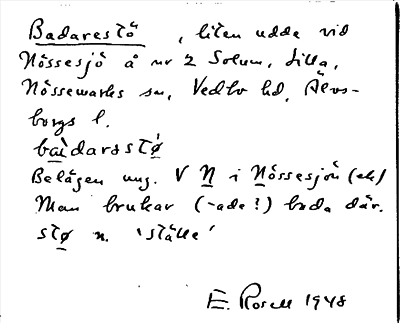 Badarestö, liten udde vid
Nössesjö å nr 2 Solum, Lilla,
Nössemarks sn, Vedbo hd, Älvs-
borgs l.
bàidarastǿ
Belägen ung. V N i Nössesjön (ek)
Man brukar (-ade?) bada där.
stø n. 'ställe'
E. Rosell 1948